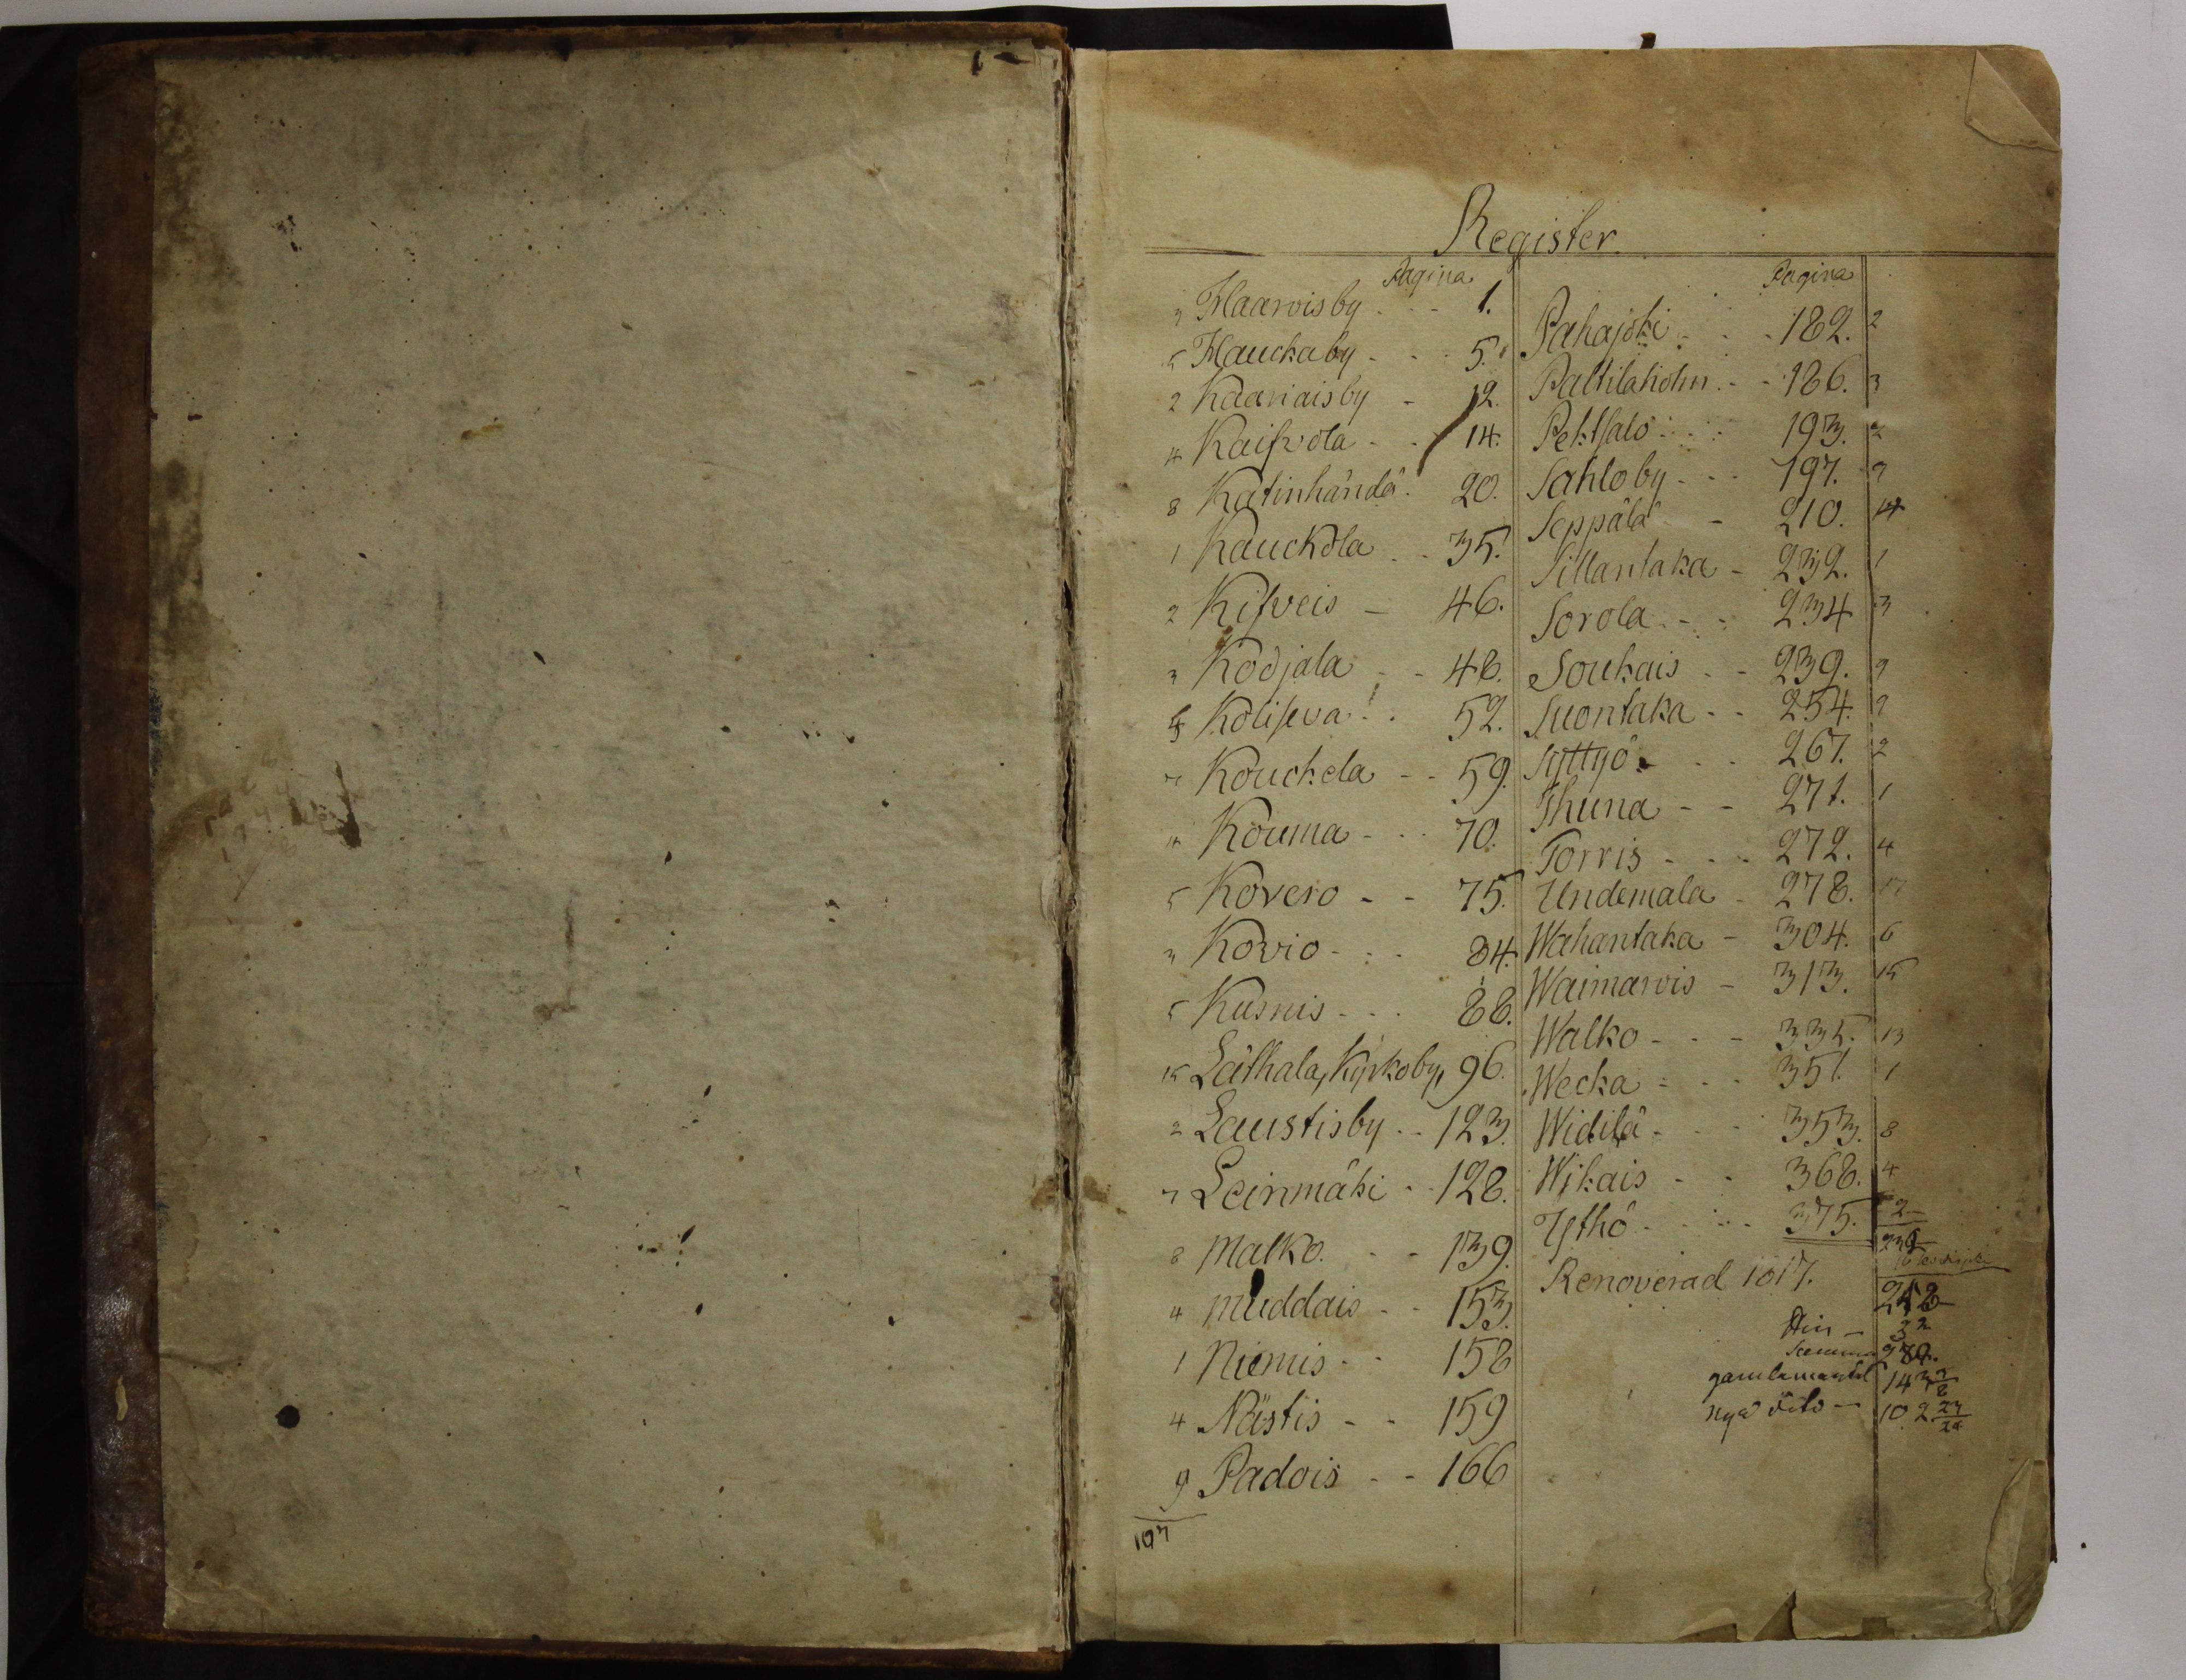 Register
Pagina
3 Haarvisby - - 1.
5 Hauckaby - - - 5.
2 Kaariaisby - 12.
4 Kaifvola - - 14.
8 Katinhändä - 20.
1 Kauckola - - 35.
2 Kifveis - 46.
3 Kodjala - - 48.
Kolifeva - - 52.
7 Kouckela - - 59.
4 Kouma - - - 70.
5 Kovero - - 75.
3 Kovio - - - 84.
5 Kusnis - - - 88.
15 Laithala, Kyrkoby, 96.
2 Laustisby - - 123.
7 Leinmäki - - 128.
8 Malko - - 139.
4 Muddais - - 153.
1 Niemis - - 158
4 Nästis - - 159
9 Padois - - 166
107
Pagina
Pahajoki - - - 182. 2
Paltilaholm - - 186. 3
Pehtsalo - - - 193. 2
Sahloby - - - 197. 9
Seppälä - - 210. 14
Sillantaka - 232. 1
Sorola - - - 234 3
Soukais - - 239. 9
Suontaka - - 254. 9
Syttyö - - - 267. 2
Thuna - - 271. 1
Torris - - - 272. 4
Undemala - 278. 17
Wahantaka - 304. 6
Waimarvis - 313. 15
Walko - - - 335. 13
Wecka - - - 351. 1
Widilä - - - 353. 8
Wikais - - 368. 4
Ythö - - - 375. 2
Renoverad 1817.
gamla mantal 143 7/8
nya dito - 102 23/24